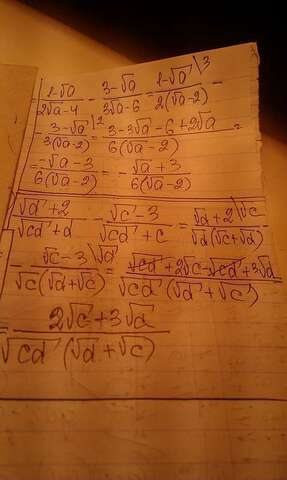 (1-√a)/(2√a-4) - (3-√a)/(3√a-6) = (1-√a)/(2(√a-2)) \3 -
(3-√a)/(3(√a-2)) \2 = (3-3√a-6+2√a)/(6(√a-2)) =
(-√a-3)/(6(√a-2)) = - (√a+3)/(6(√a-2))
(√d+2)/(√cd+d) - (√c-3)/(√cd+c) = (√d+2)/(√d(√c+√d)) \√c
- (√c-3)/(√c(√d+√c)) \√d = (√cd+2√c-√cd+3√d)/(√cd(√d+√c))
= (2√c+3√d)/(√cd(√d+√c))